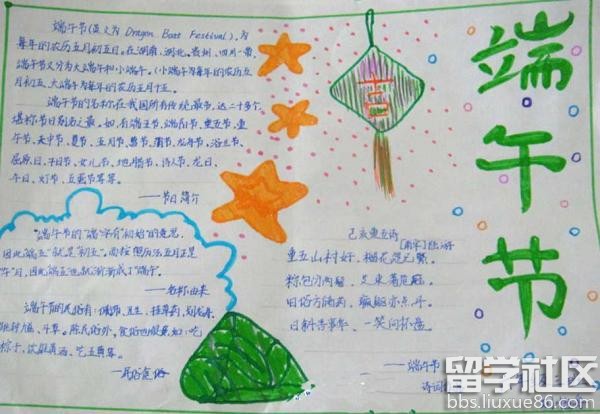 端午节
端午节(英文为 Dragon Boat Festival),为
每年的农历五月初五日。在湖南、湖北、贵州、四川一带,
端午节又分为大端午和小端午。(小端午为每年的农历五
月初五,大端午为每年的农历五月十五。
端午节的名称在我国所有传统节日中最多,达二十多个,
堪称节日别名之最。如,有端五节、端阳节、重五节、重
午节、天中节、夏节、五月节、菖节、蒲节、龙舟节、浴兰节、
屈原日、午日节、女儿节、地腊节、诗人节、龙日、
午日、灯节、五蛋节等等。
——节日简介
"端午节的"端"字有"初始"的意思,
因此"端五"就是"初五"。而按照历法五月正是
"午"月,因此"端五"也就渐渐成了"端午"。
——名称由来
吃
粽子
——民俗食俗
吉
己亥重五诗
[南宋]陆游
重五山村好,榴花忽已繁。
粽包分两髻,艾束著危冠。
旧俗方储药,羸躯亦点丹。
日斜吾事毕,一笑向杯盘。
——端午节
诗词
留学社区
bbs.liuxue86.com